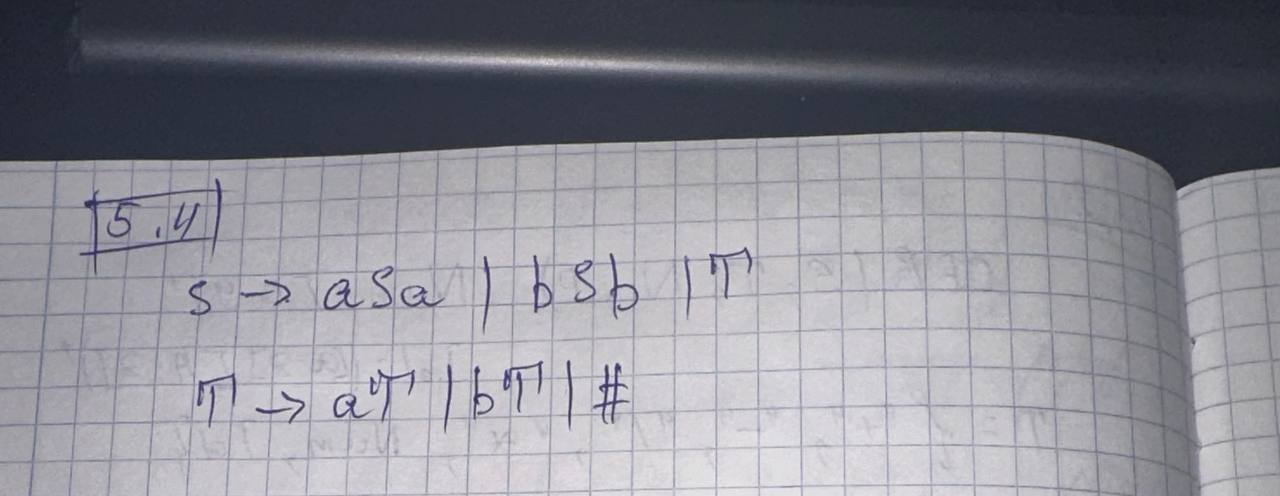 5.4
S → aSa | bSb | T
T → aT | bT | #